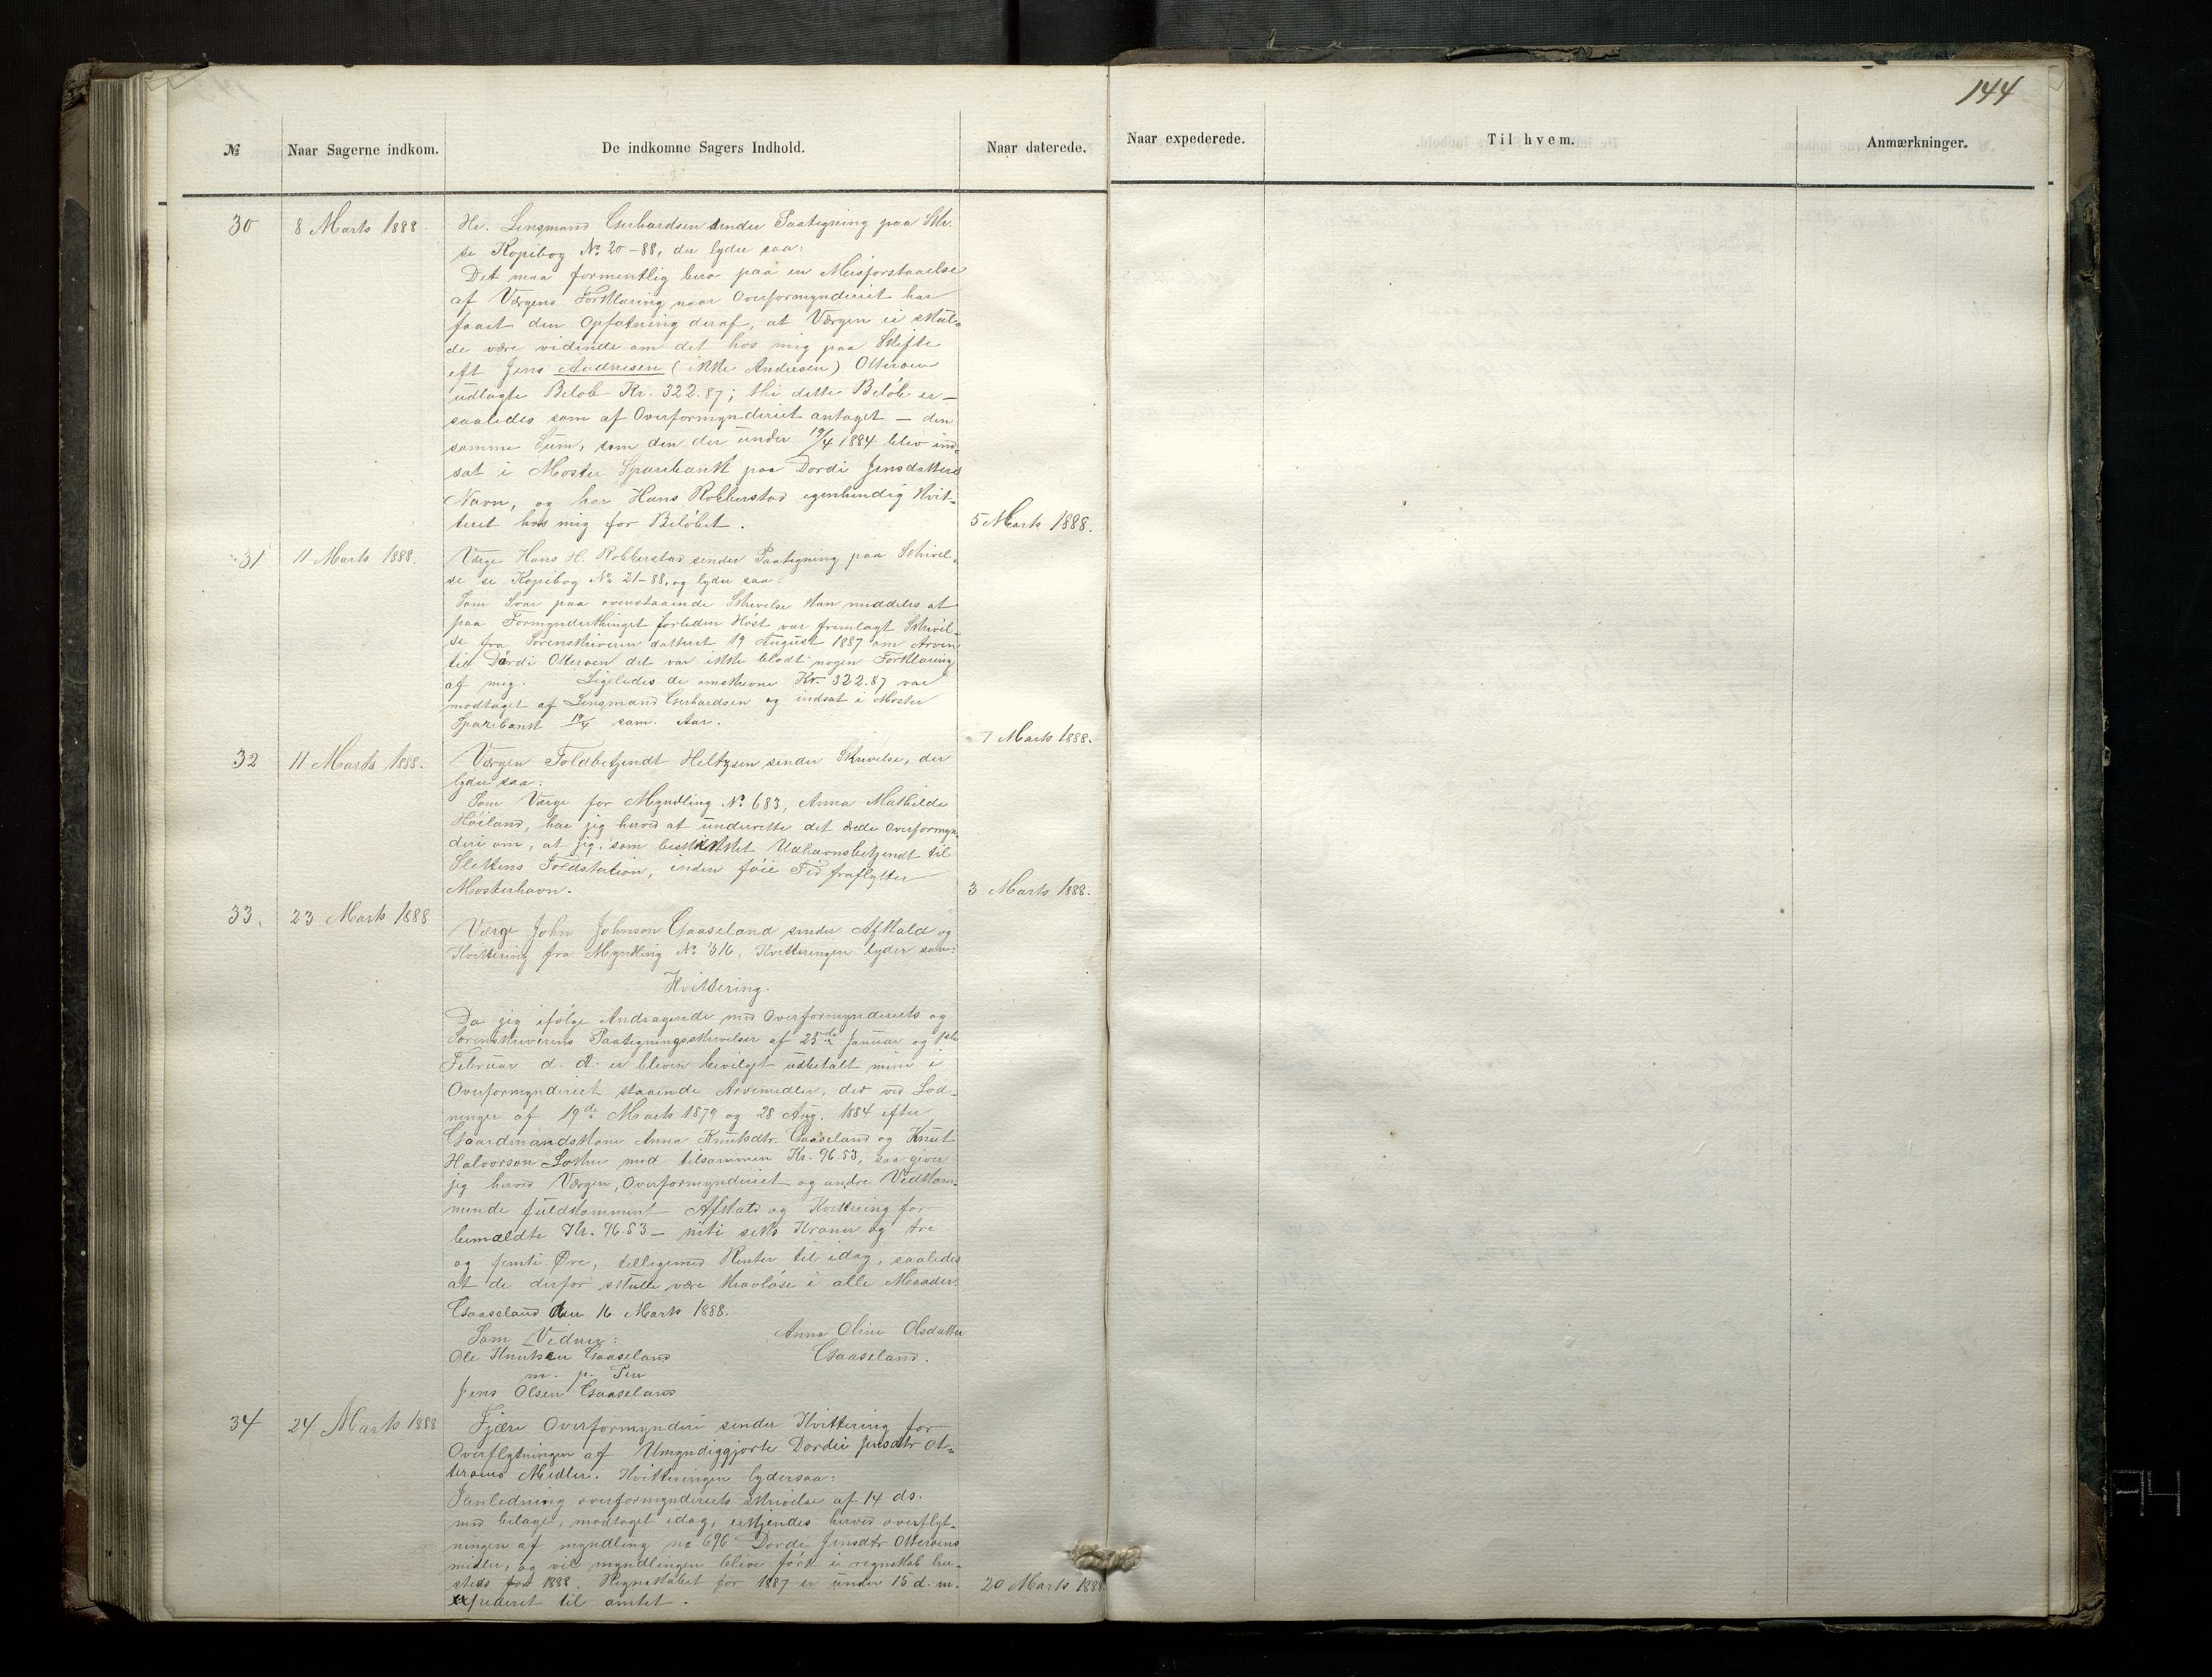 144
№ Naar Sagerne indkom. De indkomne Sagers Indhold. Naar daterede. Naar expederede. Til hvem. Anmærkninger.
30 8 Marts 1888. Hr. Lensmand Gerhardsen sender Paategning paa Skr.
se Kopibog No 20-88, der lyder saa:
Det maa formentlig bero paa en Meisforstaaelse
af Værgens Forklaring naar Overformynderiet har
faaet den Opfatning deraf, at Værgen ei skul-
de være vidende om det hos mig paa Skifte
eft Jens Aadnesen (ikke Andersen) Otteroen
udlagte Beløb Kr. 322.87; thi dette Beløb er –
saaledes som af Overformynderiet antaget – den
samme Sum, som den der under 19/4 1884 blev ind-
sat i Moster Sparebank paa Dordi Jensdatters
Navn, og har Hans Robberstad egenhendig kvit-
teret hos mig for Beløbet. 5 Marts 1888.
31 11 Marts 1888. Værge Hans H. Robberstad sender Paategning paa Skrivel-
se se Kopibog No 21-88, og lyder saa:
Som Svar paa ovenstaaende Skrivelse kan meddeles at
paa Formynderthinget forleden Høst var fremlagt Skrivel-
se fra Sorenskriveren datteret 19 August 1887 om Arven
til Dårdi Otteroen det var ikke blodt nogen Forklaring
af mig. Ligeledes de omskrevne Kr. 322.87 var
modtaget af Lensmand Gerhardsen og indsat i Moster
Sparebank 19/4 sam. Aar. 7 Marts 1888.
32 11 Marts 1888. Værgen Toldbetjendt Heltzsen sender Skrivelse, der
lyder saa:
Som Værge for Myndling No. 683, Anna Mathilde
Høiland, har jeg herved at underrette det ærede Overformyn-
deri om, at jeg, som beskikket Udhavnsbetjendt til
Slettens Toldstation, inden føie Tid fraflytter
Mosterhavn. 3 Marts 1888.
33. 23 Marts 1888 Værge John Johnson Gaaseland sender Afkald og
Kvittering fra Myndling No 316, Kvitteringen lyder saa:
Kvittering.
Da jeg ifølge Andragende med Overformynderiets og
Sorenskriverens Paategningsskrivelser af 25de Januar og 1ste
Februar d. A. er bleven bevilget udbetalt mine i
Overformynderiet staaende Arvemidler, der ved Lod-
ninger af 19de Marts 1879 og 28 Aug. 1884 efter
Gaardmandskone Anna Knutsdtr. Gaaseland og Knut
Halvorson Lothe med tilsammen Kr. 96.53, saa giver
jeg herved Værgen, Overformynderiet og andre Vedkom-
mende fuldkomment Afkald og Kvittering for
bemældte Kr. 96.53 – niti seks Kroner og tre
og femti Øre, tilligemed Renter til idag, saaledes
at de derfor skulle være kravløse i alle Maader.
Gaaseland den 16 Marts 1888.
Som Vidner: Anna Oline Olsdatter
Ole Knutsen Gaaseland Gaaseland.
m. p. Pen
Jens Olsen Gaaseland
34 24 Marts 1888 Fjære Overformynderi sender Kvittering for
Overflytningen af Umyndiggjorte Dordei Jensdtr Ot-
teroens Midler. Kvitteringen lydersaa:
Ianledning overformynderiets skrivelse af 14 ds.
med bilage, modtaget idag, erkjendes herved overflyt-
ningen af myndling no 696 Dorde Jensdtr Otteroens
midler, og vil myndlingen blive ført i regnskab her-
steds for 1888. Regnskabet for 1887 er under 15 d. m.
expederet til amtet. 20 Marts 1888.